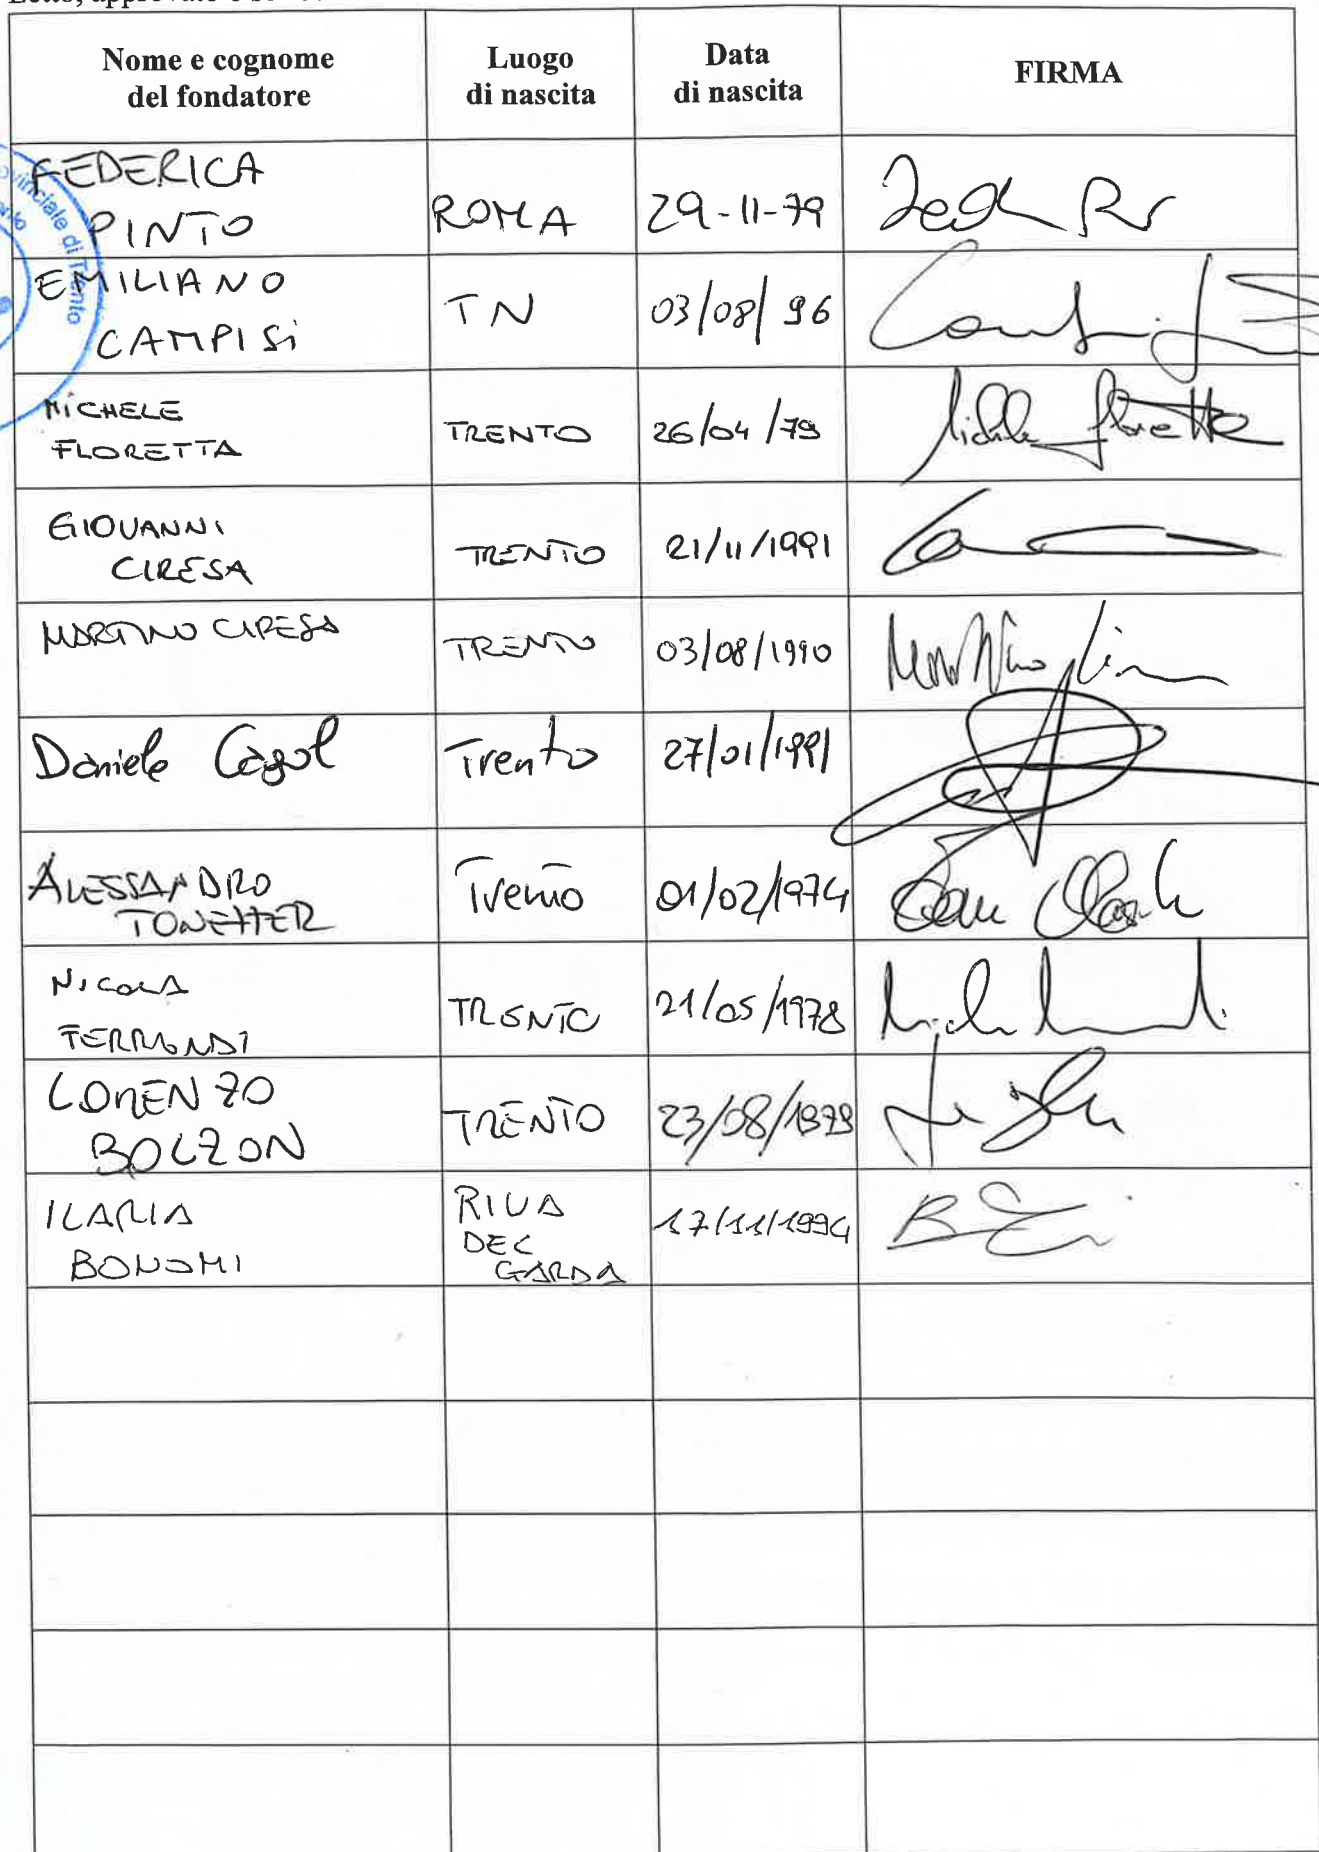 Nome e cognome
del fondatore
Luogo
di nascita
Data
di nascita
FIRMA
FEDERICA
PINTO
ROMA
29-11-79
EMILIANO
CAMPISi
TN
03/08/96
MiCHELE
FLORETTA
TRENTO
26/04/79
Michele Floretta
GIOVANNI
CIRESA
TRENTO
21/11/1991
MARTINO CIRESA
TRENTO
03/08/1990
Daniele Cagol
Trento
27/01/1991
ALESSANDRO
TONETTER
Trento
01/02/1974
NICOLA
FERRANDI
TRENTO
21/05/1978
LORENZO
BOLZON
TRENTO
23/08/1979
ILARIA
BONOMI
RIVA
DEL
GARDA
17/11/1994
ovinciale di Trento